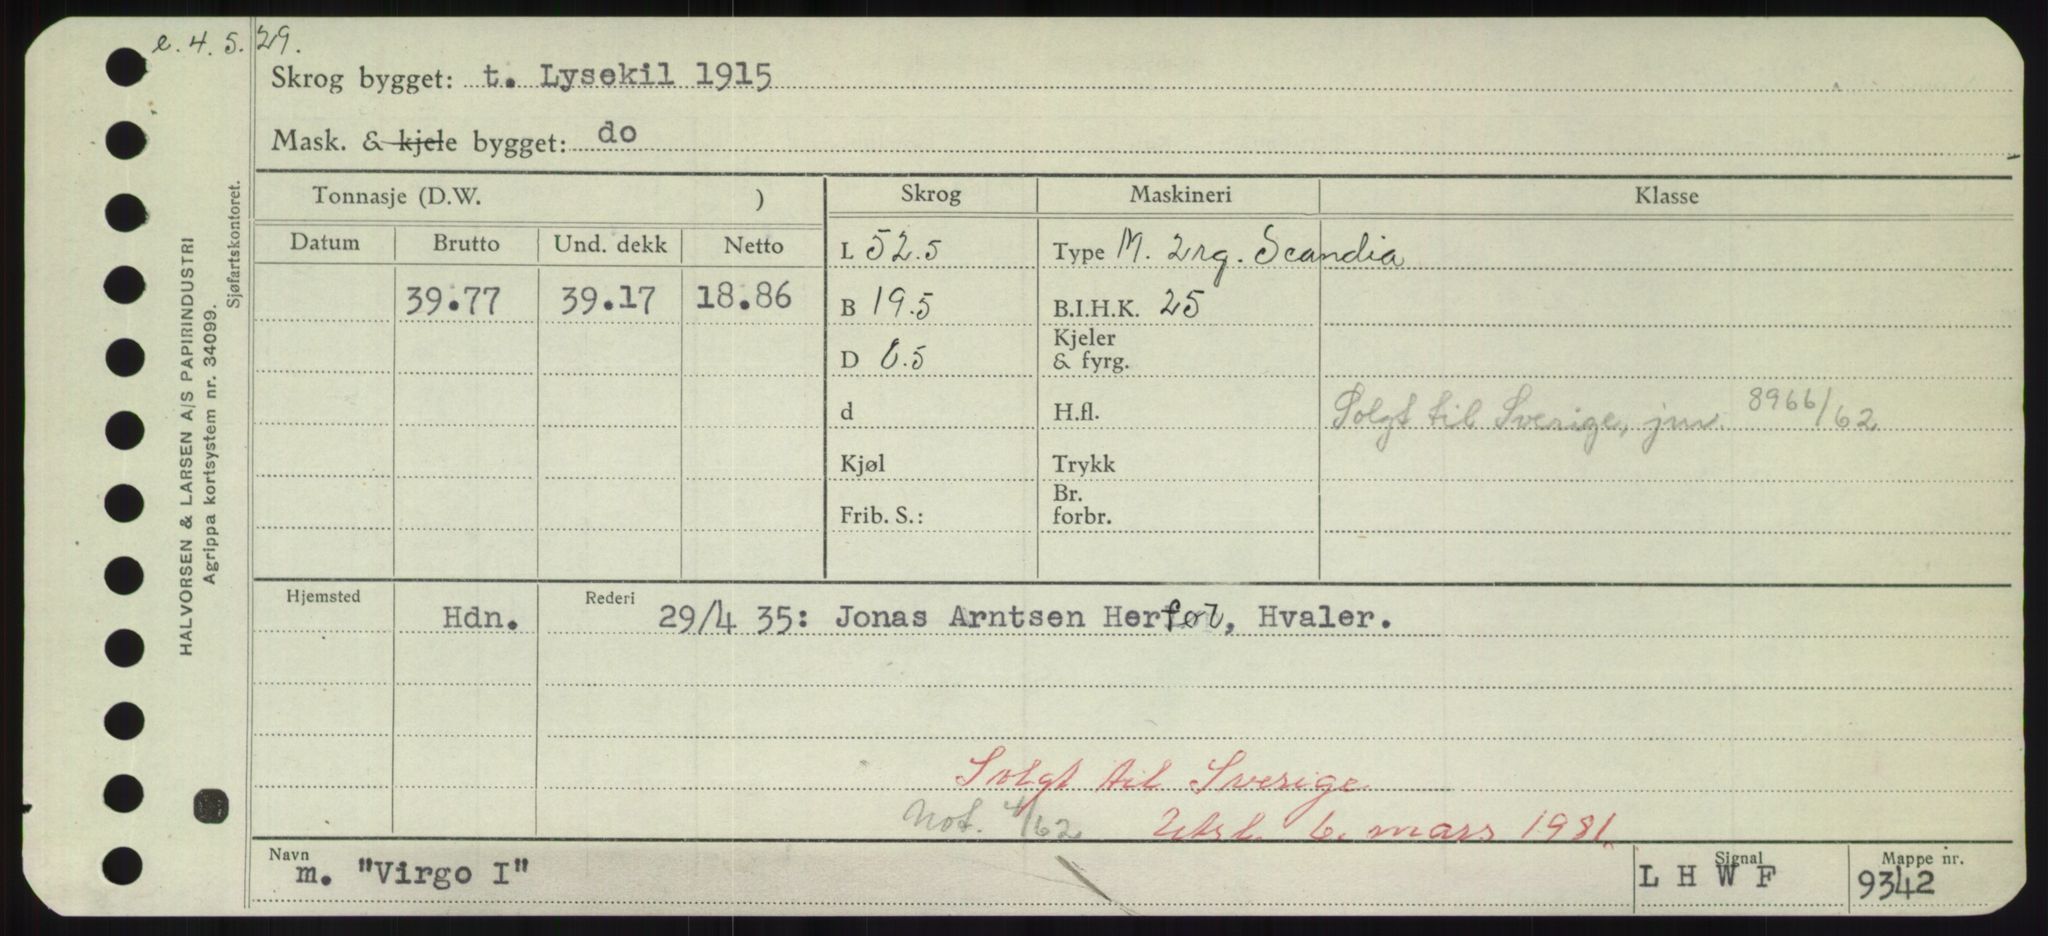 e. 4. 5. 29.
Skrog bygget: t. Lysekil 1915
Mask. & kjele bygget: do
Tonnasje (D.W. ) Skrog Maskineri Klasse
Datum Brutto Und. dekk Netto L 52.5 Type M. 2rg. Scandia
39.77 39.17 18.86 B 19.5 B.I.H.K. 25
D 6.5 Kjeler & fyrg.
d H.fl. Solgt til Sverige, jnr. 8966/62
Kjøl Trykk
Frib. S.: Br. forbr.
Hjemsted Hdn. Rederi 29/4 35: Jonas Arntsen Herføl, Hvaler.
Solgt til Sverige
Not. 4/62 Utsl. 6. mars 1981.
Navn m. "Virgo I" Signal L H W F Mappe nr. 9342
HALVORSEN & LARSEN A/S PAPIRINDUSTRI
Agrippa kortsystem nr. 34099.
Sjøfartskontoret.